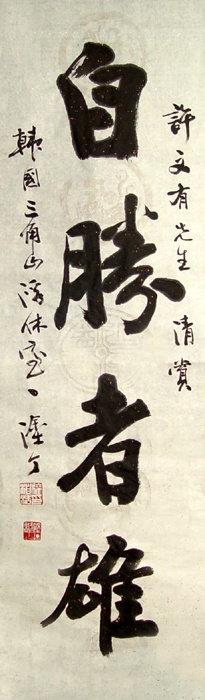 許文有先生 清賞
自勝者雄
韓國三角山